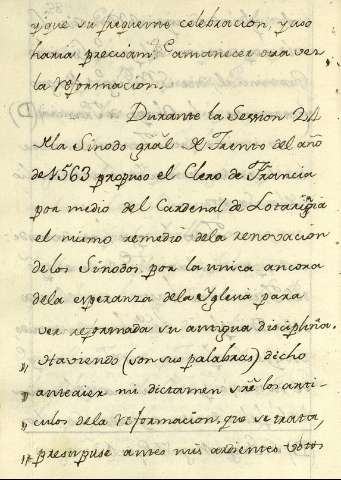 y que su frequente celebracion, y uso
haria precisam.te amanecer otra vez
la reformacion.
Durante la Session 24
de la Sinodo gral de Trento del año
de 1563 propuso el Clero de Francia
por medio del Cardenal de Lotaringia
el mismo remedio dela renovacion
delos Sinodos por la unica ancora
dela esperanza dela Yglesia para
ser reformada su antigua disciplina.
„ Haviendo (son sus palabras) dicho
„ anteaier mi dictamen sre los arti-
„ culos dela reformacion, que se trata,
„ presupuse antes mis ardientes votos